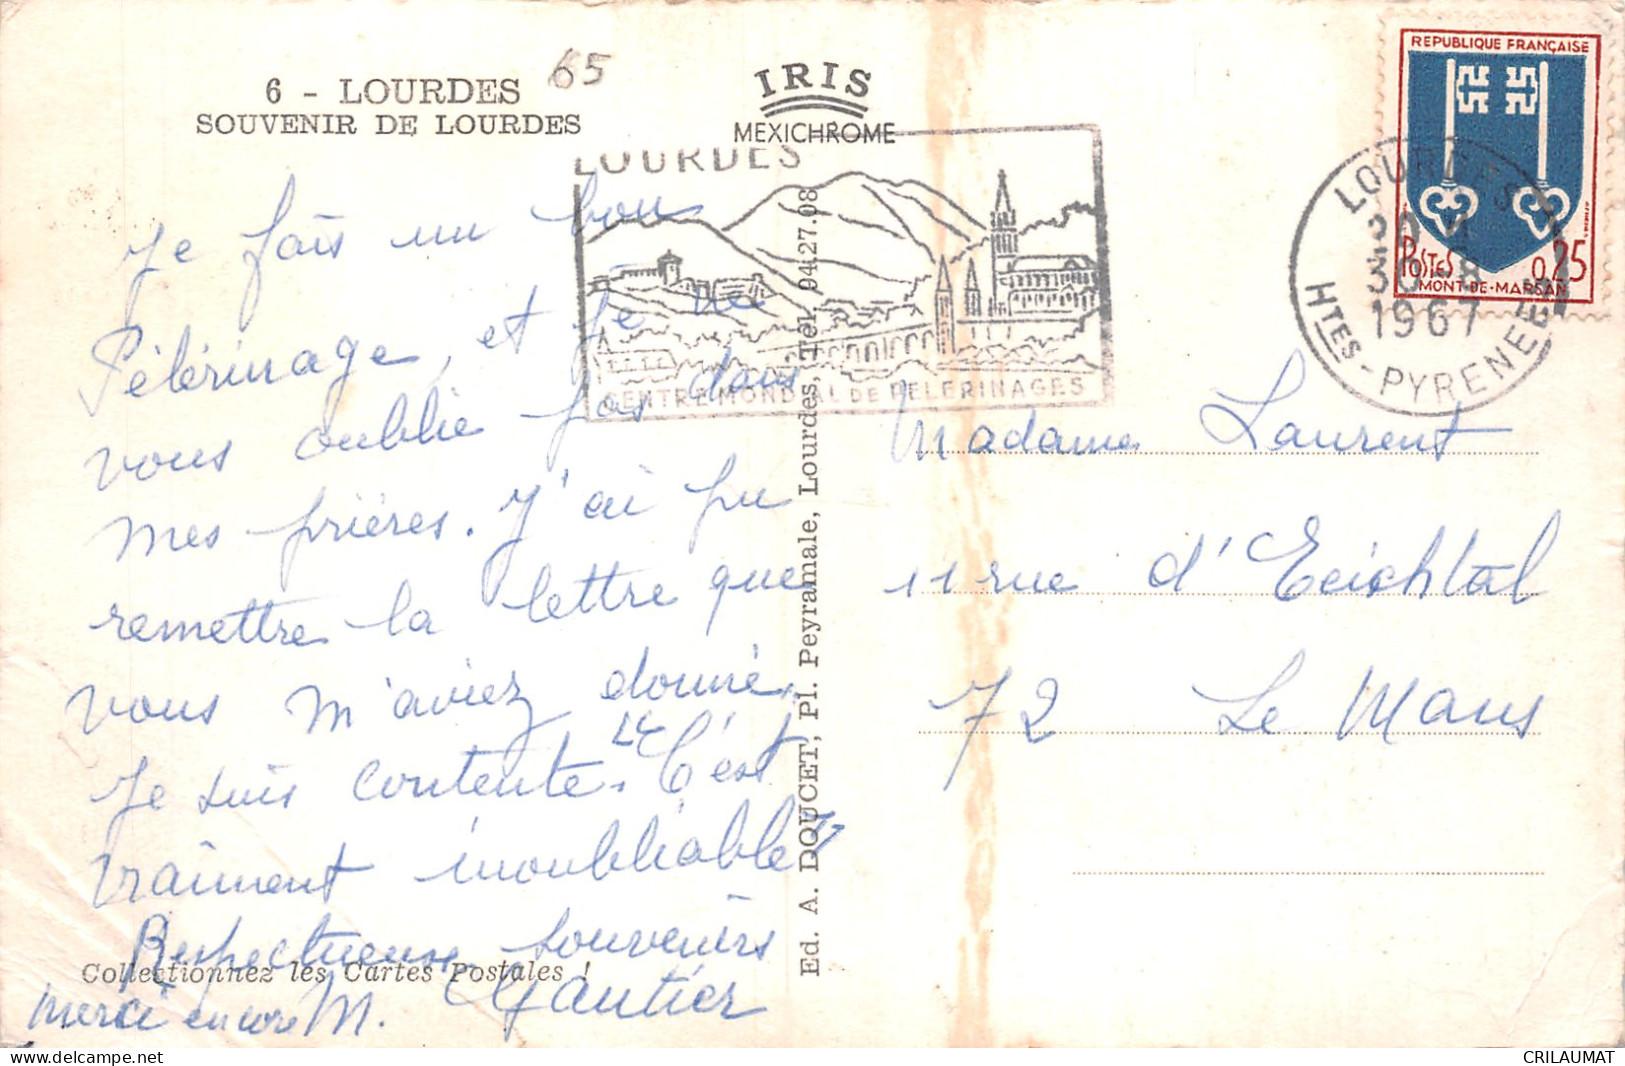 6 - LOURDES
SOUVENIR DE LOURDES
65
IRIS
MEXICHROME
LOURDES
CENTRE MONDIAL DE PELERINAGES
REPUBLIQUE FRANÇAISE
POSTES 0,25
MONT-DE-MARSAN
LOURDES
30 -8
1967
HTES-PYRENEES
Je fais un bon
Pélérinage, et je ne
vous oublie pas dans
mes prières. J'ai pu
remettre la lettre que
vous m'aviez donné.
Je suis contente. C'est
vraiment inoubliable
Respectueux souvenirs
merci encore M. Gautier
Collectionnez les Cartes Postales !
Ed. A. DOUCET, Pl. Peyramale, Lourdes, Tél. 94.27.08
Madame Laurent
11 rue d'Eeichtal
72 Le Mans
CRILAUMAT